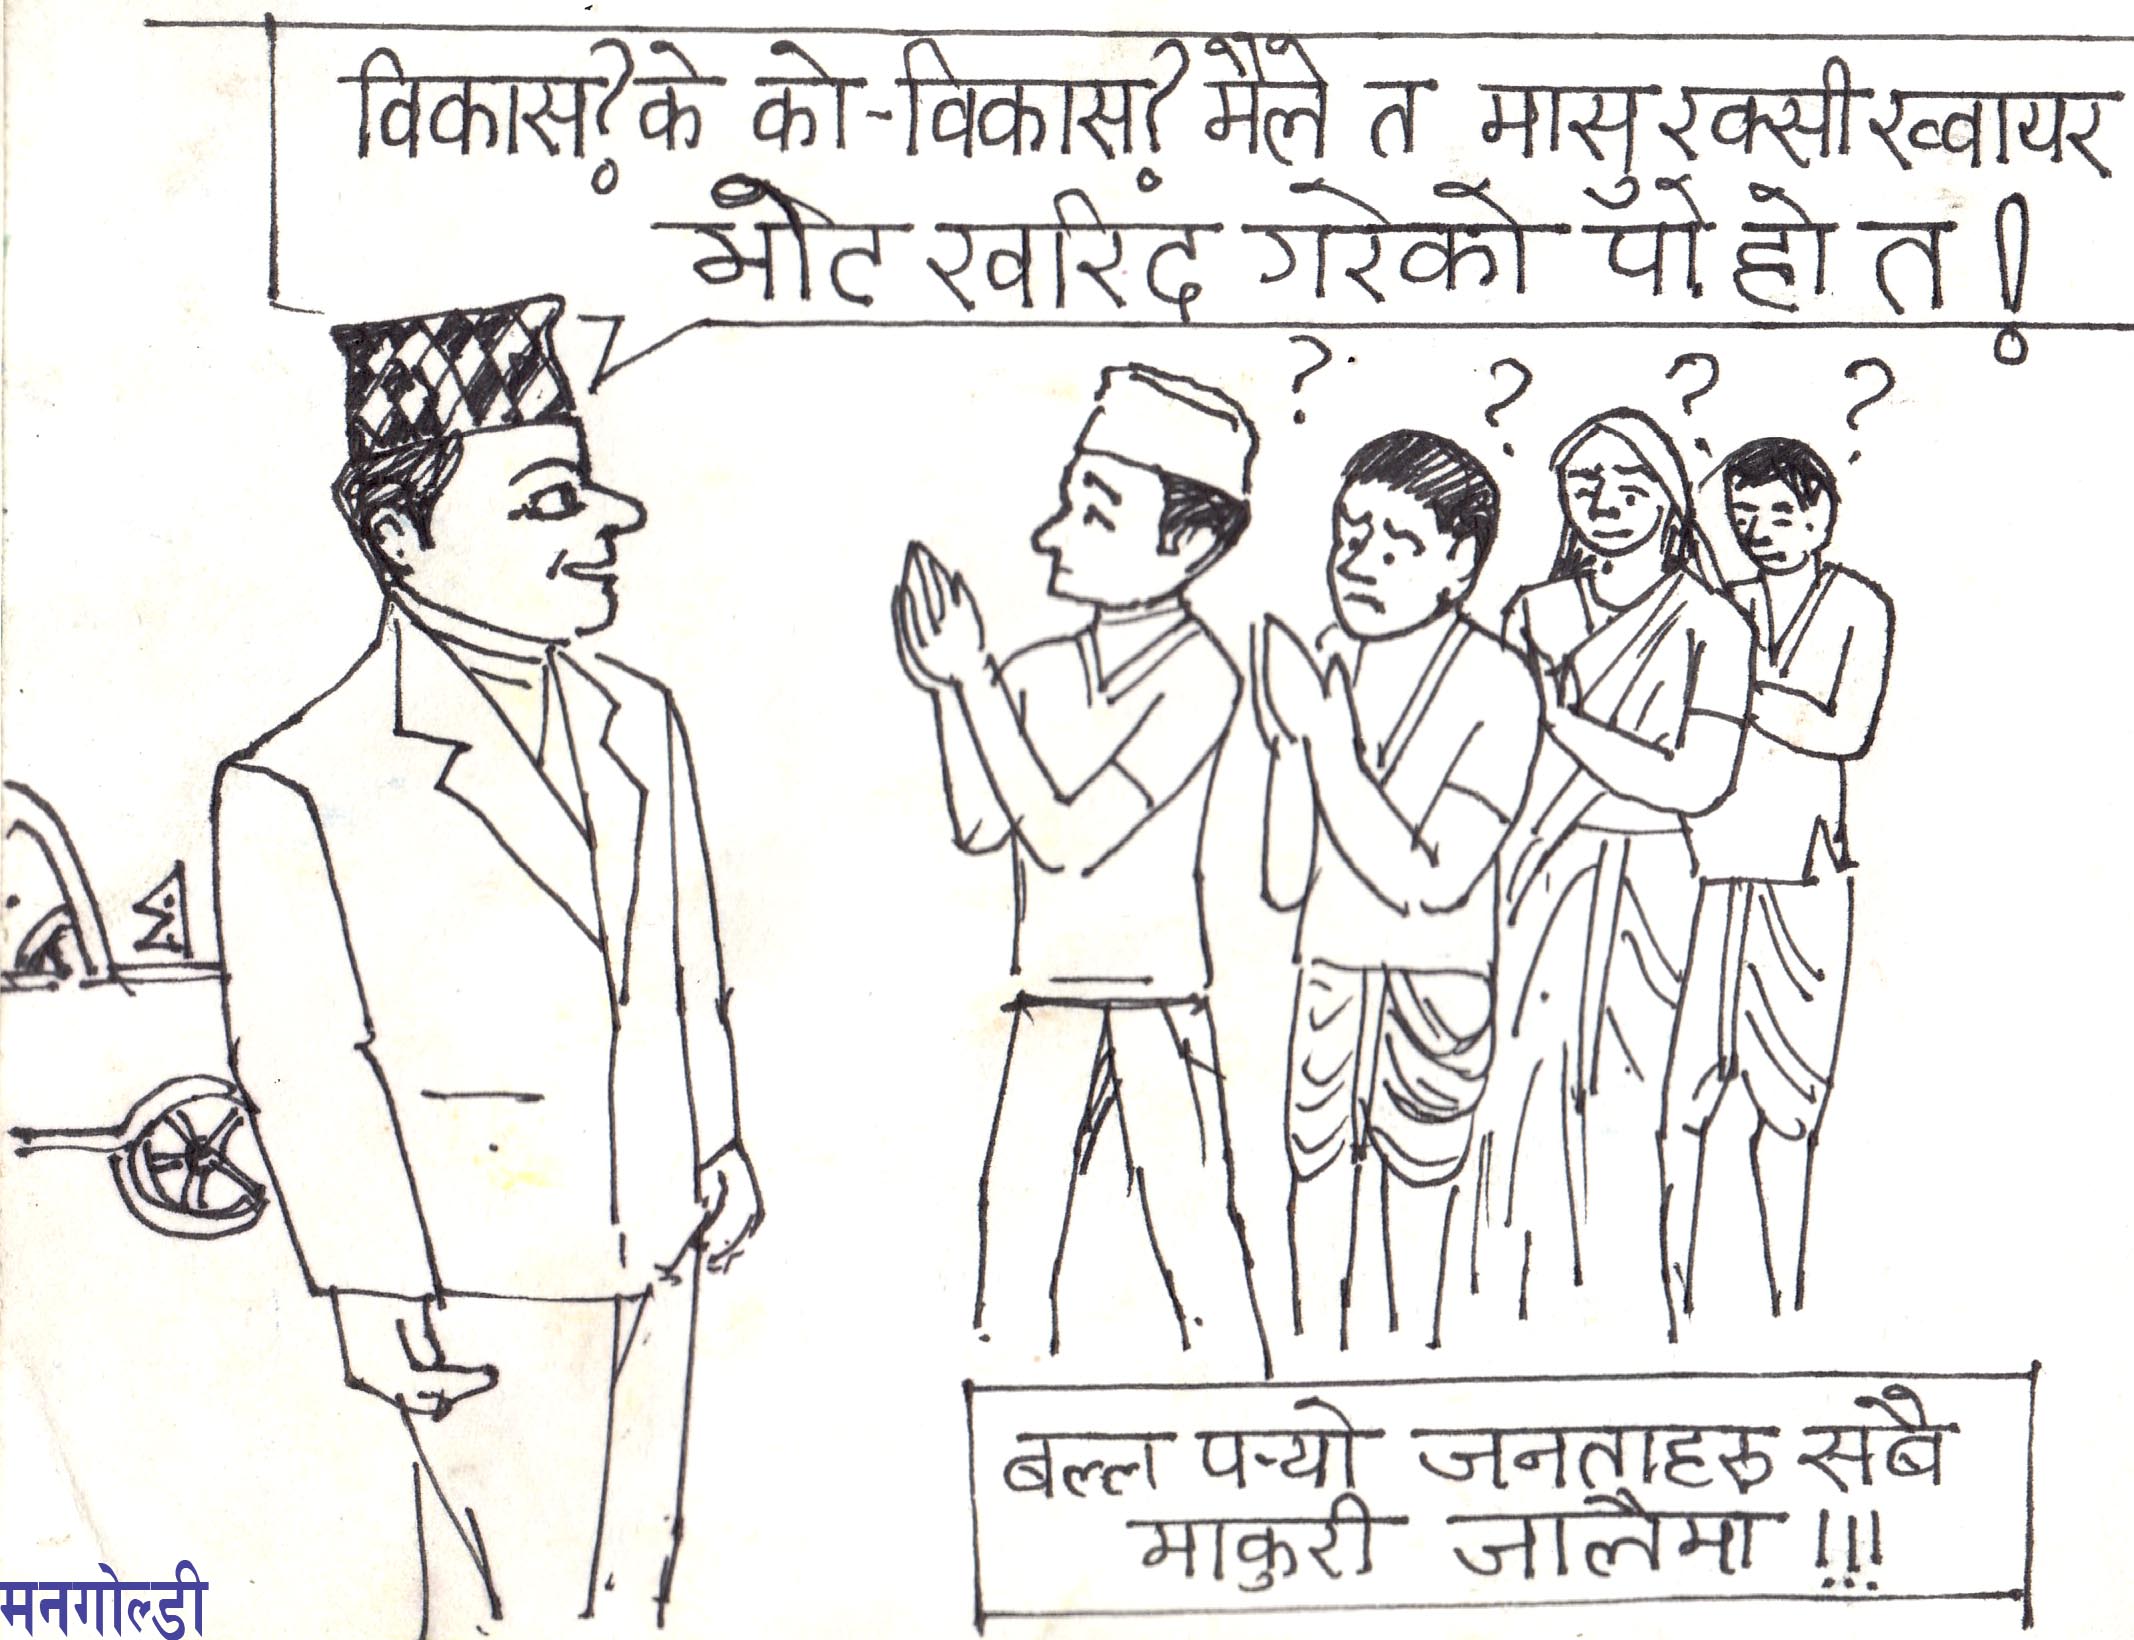 विकास? के को-विकास? मैले त मासु रक्सी ख्वायर
भोट खरिद गरेको पो हो त!
? ? ? ?
बल्ल पर्‍यो जनताहरु सबै
माकुरी जालैमा !!!
मनगोल्डी